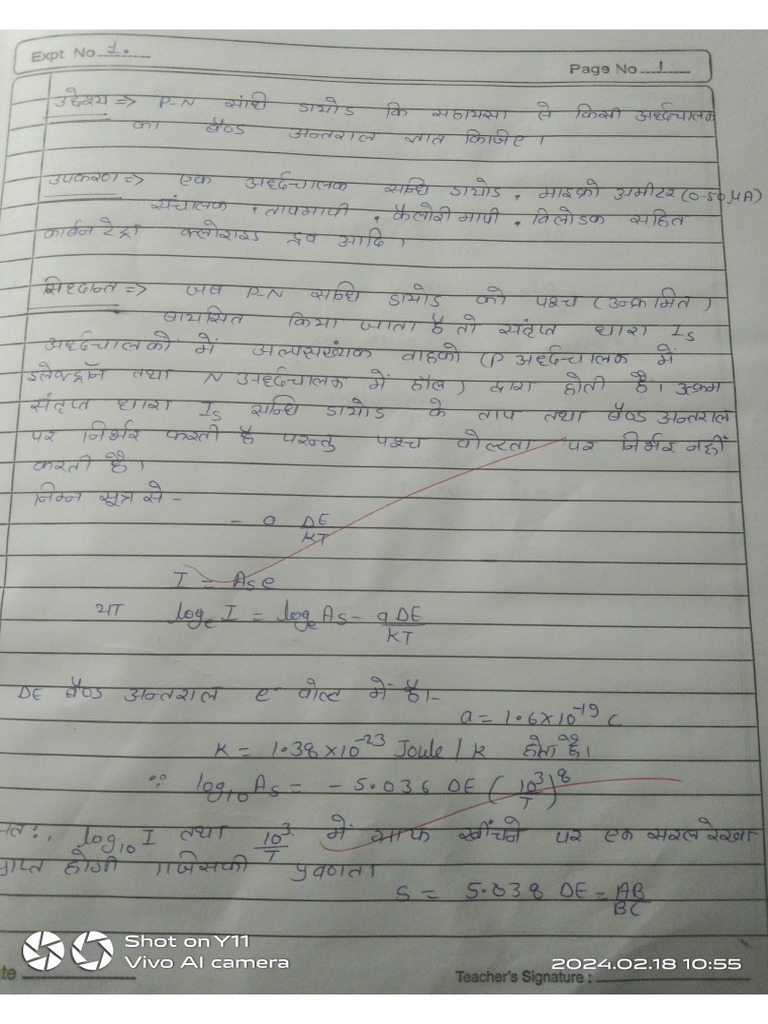 Expt No 1.
Page No 1
उद्देश्य => P-N संधि डायोड कि सहायता से किसी अर्ध्दचालक
का बैण्ड अन्तराल ज्ञात किजिए।
उपकरण => एक अर्ध्दचालक सन्धि डायोड, माइक्रो अमीटर (0-50 μA)
संचालक, तापमापी, कैलोरीमापी, विलोडक सहित
कार्बन टेट्रा क्लोराइड द्रव आदि।
सिध्दान्त => जब P-N सन्धि डायोड को पश्च (उत्क्रमित)
बायसित किया जाता है तो संतृप्त धारा Is
अर्ध्दचालकों में अल्पसंख्यक वाहको (P अर्ध्दचालक में
इलेक्ट्रॉन तथा N अर्ध्दचालक में हॉल) द्वारा होती है।
संतृप्त धारा Is सन्धि डायोड के ताप तथा बैण्ड अन्तराल
पर निर्भर करती है परन्तु पश्च वोल्टता पर निर्भर नहीं
करती है।
निम्न सूत्र से -
- a DE/KT
I = Ase
या logeI = logeAs - aDE/KT
DE बैण्ड अन्तराल e- वोल्ट में है।-
a = 1.6×10^-19 C
K = 1.38×10^-23 Joule/k होता है।
∵ log10As = - 5.036 DE (10^3/T)^8
log10 I तथा 10^3/T में ग्राफ खींचने पर एक सरल रेखा
प्राप्त होगी जिसकी प्रवणता
S = 5.038 DE = AB/BC
Shot on Y11
Vivo AI camera
2024.02.18 10:55
Teacher's Signature :